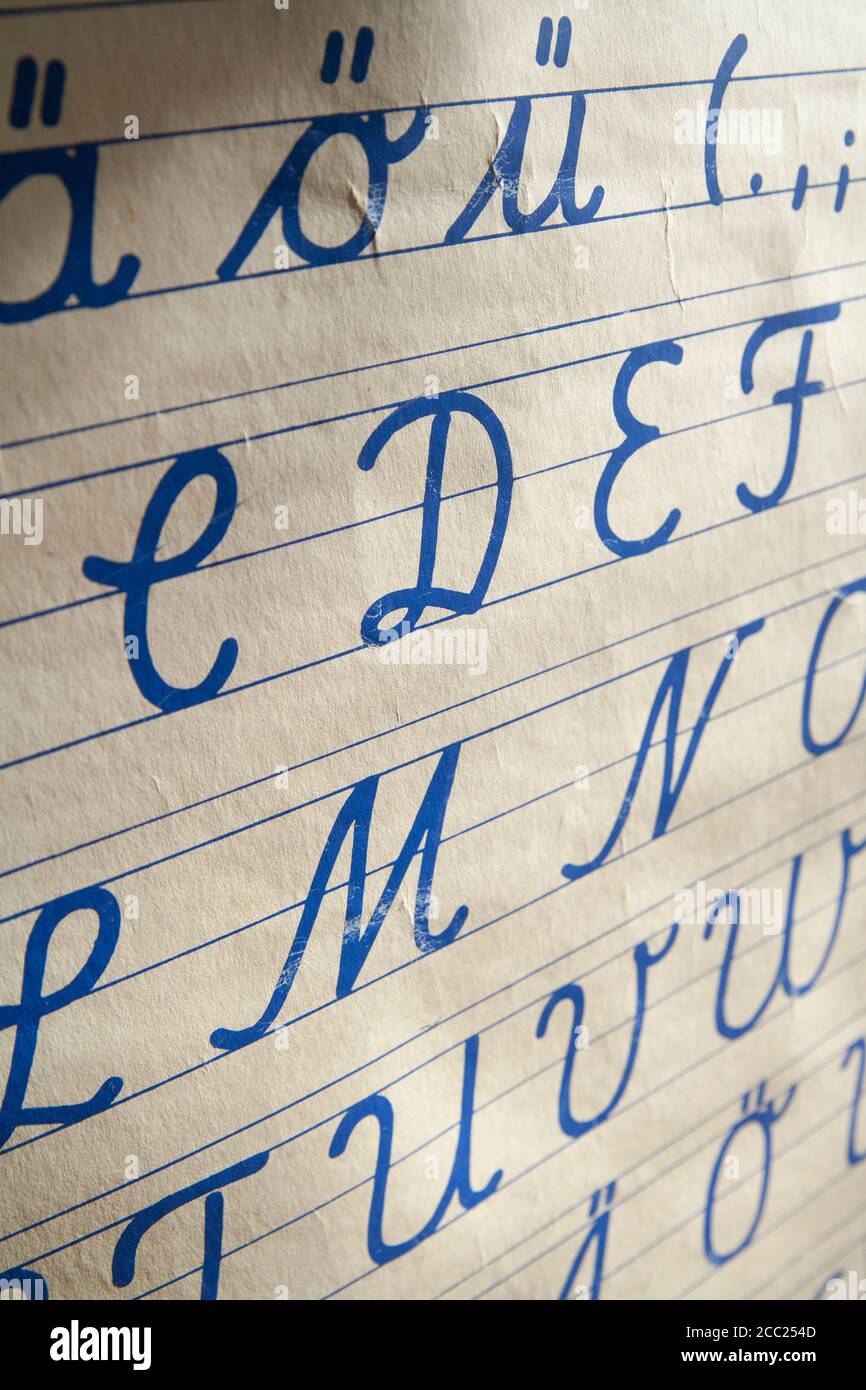 ä ö ü ( . , ;
C D E F
L M N O
T U V W
Ä Ö
alamy
Image ID: 2CC254D
www.alamy.com